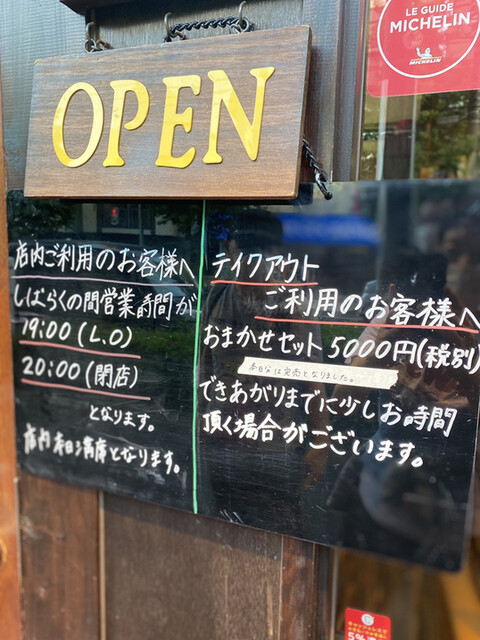 OPEN
LE GUIDE
MICHELIN
MICHELIN
店内ご利用のお客様へ
しばらくの間営業時間が
19:00(L.O)
20:00(閉店)
となります。
店内本日満席となります。
テイクアウト
ご利用のお客様へ
おまかせセット5000円(税別)
本日分は完売となりました。
できあがりまでに少しお時間
頂く場合がございます。
キャッシュレスで
5%